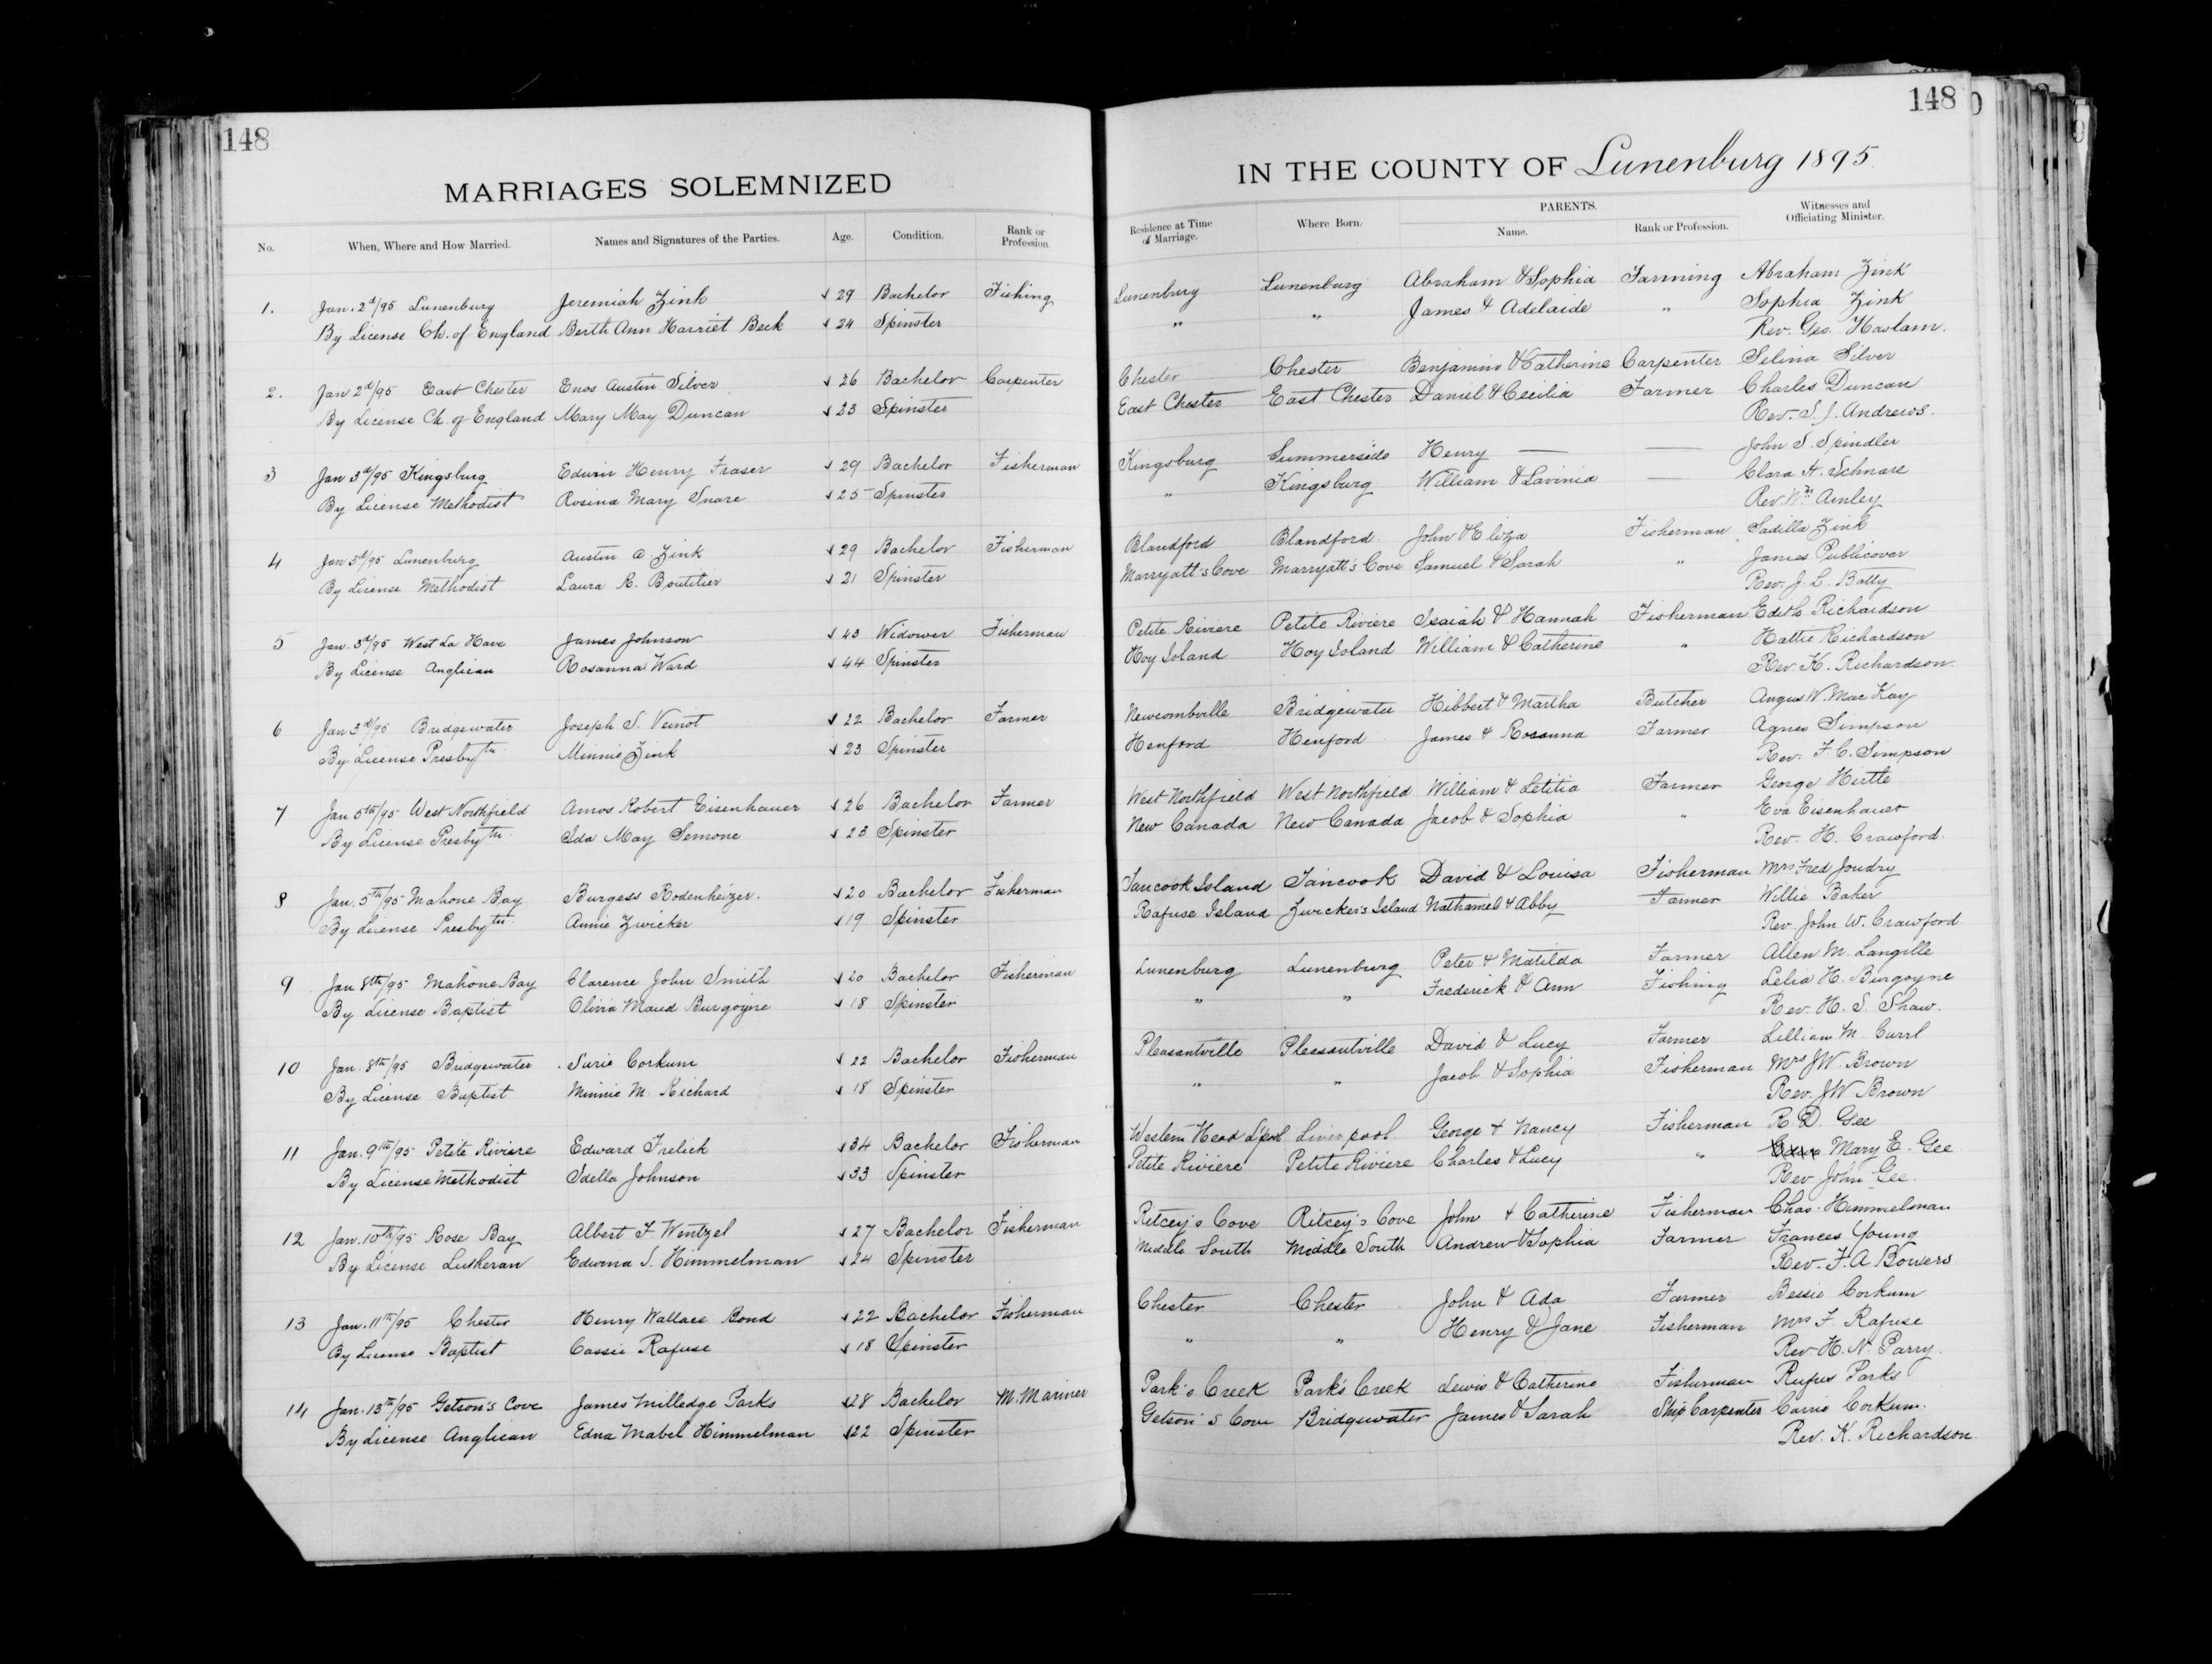 148
MARRIAGES SOLEMNIZED
No. When, Where and How Married. Names and Signatures of the Parties. Age. Condition. Rank or Profession.
1. Jan. 2d/95 Lunenburg Jeremiah Zink 29 Bachelor Fishing
By License Ch. of England Berth Ann Harriet Beck 24 Spinster
2. Jan 2d/95 East Chester Enos Austin Silver 26 Bachelor Carpenter
By License Ch. of England Mary May Duncan 23 Spinster
3 Jan 3d/95 Kingsburg Edwin Henry Fraser 29 Bachelor Fisherman
By License Methodist Rosina Mary Snare 25 Spinster
4 Jan 3d/95 Lunenburg Austin Zink 29 Bachelor Fisherman
By License Methodist Laura R. Boutilier 21 Spinster
5 Jan. 3d/95 West La Have James Johnson 43 Widower Fisherman
By License Anglican Rosanna Ward 44 Spinster
6 Jan 3d/95 Bridgewater Joseph S. Veinot 22 Bachelor Farmer
By License Presbytn. Minnie Zink 23 Spinster
7 Jan 5th/95 West Northfield Amos Robert Eisenhauer 26 Bachelor Farmer
By License Presbytn. Ida May Semone 23 Spinster
8 Jan. 5th/95 Mahone Bay Burgess Rodenheizer. 20 Bachelor Fisherman
By License Presbytn. Annie Zwicker 19 Spinster
9 Jan 8th/95 Mahone Bay Clarence John Smith 20 Bachelor Fisherman
By License Baptist Olivia Maud Burgoyne 18 Spinster
10 Jan. 8th/95 Bridgewater Surie Corkum 22 Bachelor Fisherman
By License Baptist Minnie M. Richard 18 Spinster
11 Jan. 9th/95 Petite Riviere Edward Frelick 34 Bachelor Fisherman
By License Methodist Idella Johnson 33 Spinster
12 Jan. 10th/95 Rose Bay Albert F. Wentzel 27 Bachelor Fisherman
By License Lutheran Edwina S. Himmelman 24 Spinster
13 Jan. 11th/95 Chester Henry Wallace Bond 22 Bachelor Fisherman
By License Baptist Cassie Rafuse 18 Spinster
14 Jan. 13th/95 Getson's Cove James Milledge Parks 28 Bachelor M. Mariner
By License Anglican Edna Mabel Himmelman 22 Spinster
148
IN THE COUNTY OF Lunenburg 1895.
Residence at Time of Marriage. Where Born. PARENTS. Name. Rank or Profession. Witnesses and Officiating Minister.
Lunenburg Lunenburg Abraham & Sophia Farming Abraham Zink
" " James & Adelaide " Sophia Zink
Rev. Geo. Haslam.
Chester Chester Benjamin & Catherine Carpenter Selina Silver
East Chester East Chester Daniel & Cecilia Farmer Charles Duncan
Rev. S. J. Andrews.
Kingsburg Summerside Henry — — John S. Spindler
" Kingsburg William & Lavinia — Clara H. Schnare
Rev. Wm. Ainley
Blandford Blandford John & Eliza Fisherman Sadilla Zink
Marryatt's Cove Marryatt's Cove Samuel & Sarah " James Publicover
Rev. J. L. Batty
Petite Riviere Petite Riviere Isaiah & Hannah Fisherman Edith Richardson
Hoy Island Hoy Island William & Catherine " Hattie Richardson
Rev. K. Richardson.
Newcombville Bridgewater Hibbert & Martha Butcher Angus W. MacKay
Henford Henford James & Rosanna Farmer Agnes Simpson
Rev. F. C. Simpson
West Northfield West Northfield William & Letitia Farmer George Hirtle
New Canada New Canada Jacob & Sophia " Eva Eisenhauer
Rev. H. Crawford.
Tancook Island Tancook David & Louisa Fisherman Mrs Fred Joudry
Rafuse Island Zwicker's Island Nathaniel & Abby Farmer Willie Baker
Rev. John W. Crawford
Lunenburg Lunenburg Peter & Matilda Farmer Allen M. Langille
" " Frederick & Ann Fishing Lelia H. Burgoyne
Rev. H. S. Shaw.
Pleasantville Pleasantville David & Lucy Farmer Lilliam M. Carrl
" " Jacob & Sophia Fisherman Mrs JW. Brown
Rev. JW Brown
Western Head L'pool Liverpool George & Nancy Fisherman R. D. Gee
Petite Riviere Petite Riviere Charles & Lucy " Mary E. Gee
Rev John Gee.
Ritcey's Cove Ritcey's Cove John & Catherine Fisherman Chas. Himmelman
Middle South Middle South Andrew & Sophia Farmer Frances Young
Rev. F. A Bowers.
Chester Chester John & Ada Farmer Bessie Corkum
" " Henry & Jane Fisherman Mrs F. Rafuse
Rev H. N. Parry.
Park's Creek Park's Creek Lewis & Catherine Fisherman Rufus Parks
Getson's Cove Bridgewater James & Sarah Ship Carpenter Carrie Corkum.
Rev. K. Richardson.